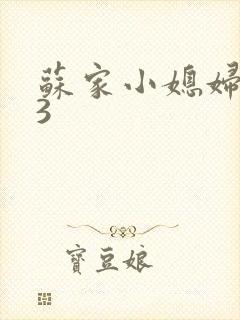 蘇家小媳婦
3
寶豆娘